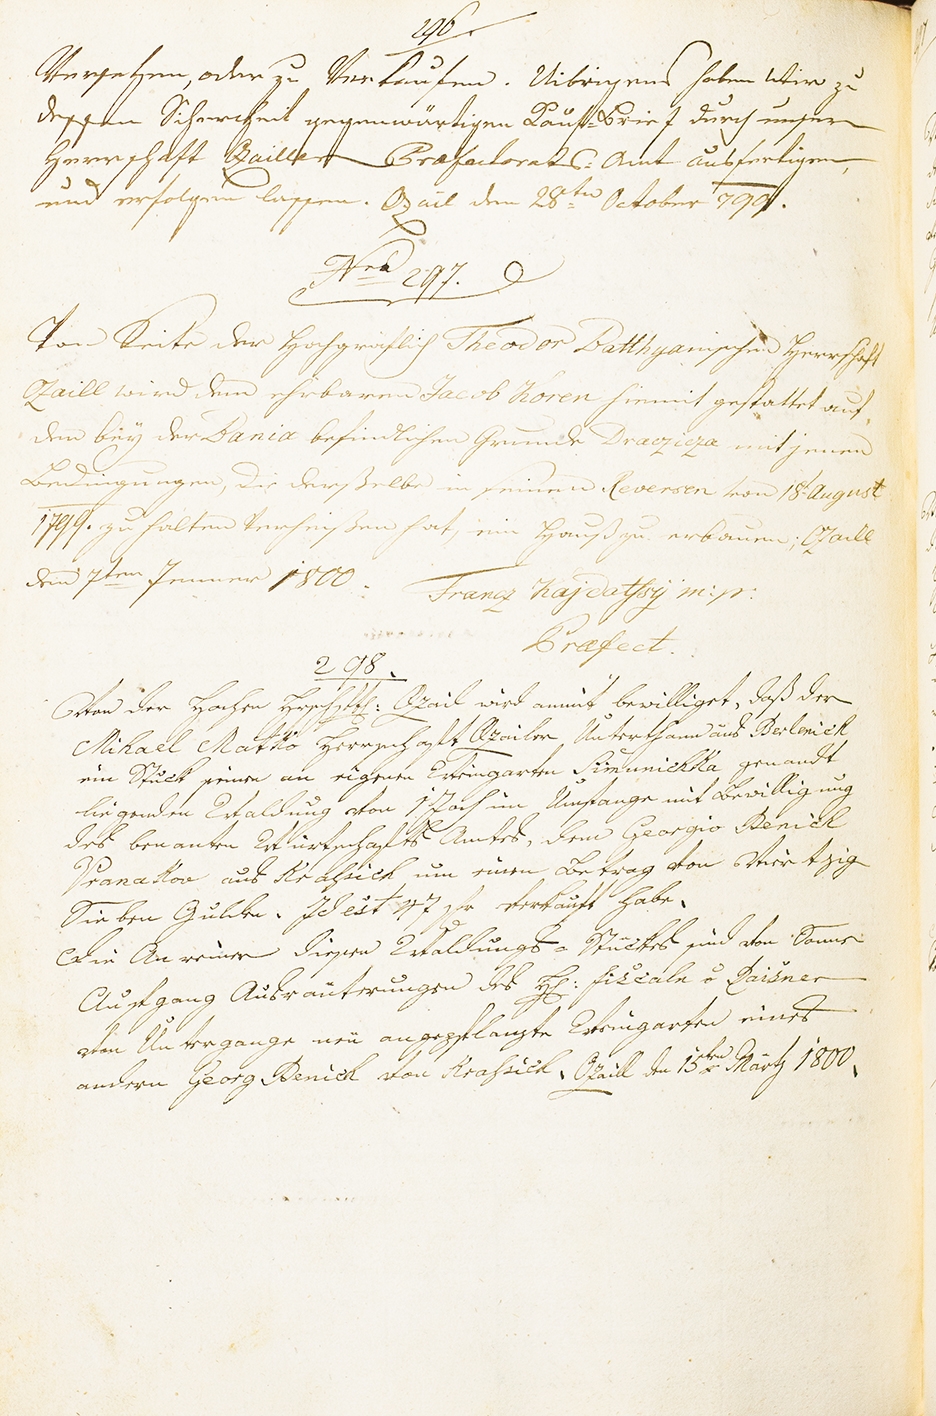 296.
Versetzen, oder zu Verkaufen. Uibrigens haben Wir zu
dessen Sicherheit gegenwärtigen Kauf-Brief durch unser
Herrschaft Ozailler Præfectorats: Amt ausfertigen,
und erfolgen lassen. Ozail den 28ten October 799.
Nro 297.
Von Seite der Hochgräflich Theodor Batthyanischen Herrschaft
Ozaill wird dem ehrbaren Jacob Koren hiemit gestattet auf
den beÿ der Bania befindlichen Grunde Dragzicza mit jenen
Bedingungen, die derselbe in seinem Reversen von 18t August
1799. zu halten verheißen hat, ein Hauß zu erbauen; Ozaill
den 7ten Jenner 1800.
Francz Kajdatsÿ m: p:
Præfect.
298.
Von der Hochen Hrschftl: Ozail wird anmit bewilliget, daß der
Mihael Matko Herrschaft Ozailer Unterthann aus Berlenick
ein Stuck seinen an eigenen Weingarten Simunichka genandt
liegenden Waldung von 1 Joch im Umfange mit Bewilligung
des benanten Wirtschafts Amtes, dem Georgio Benich
Vranakov aus Krahsich um einen Betrag von Viertzig
Sieben Gulden. Id est 47 fr verkauft habe.
Die Anreiner diesen Waldungs-Stückes sind von Sonne
Aufgang Ausräuterungen des H: Fiscaln v Raisner
von Untergange neu angepflanzte Weingarten eines
andern Georg Benich von Krahsich. Ozaill den 15ten Märtz 1800.